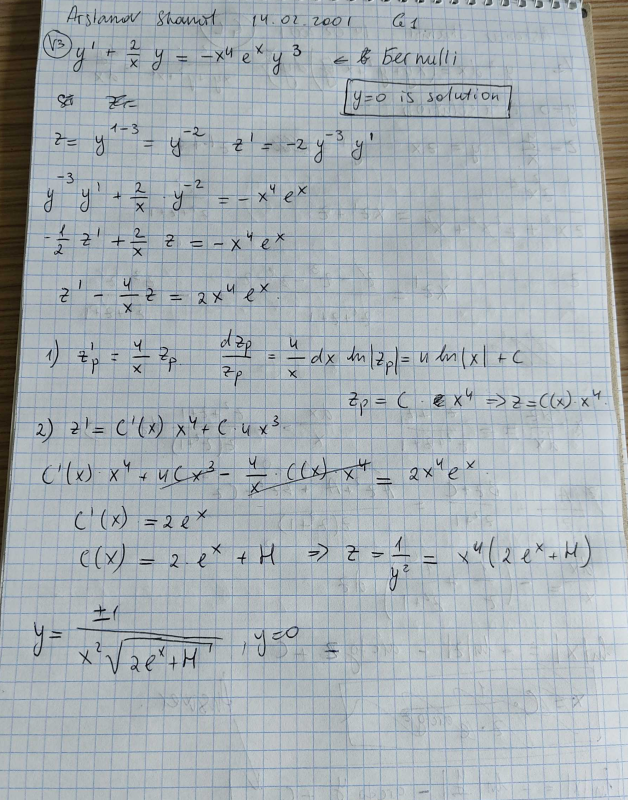 Arslanov Shamil 14.02.2001 G1
V3 y' + 2/x y = -x⁴ eˣ y³ ← Бernulli
y=0 is solution
z = y¹⁻³ = y⁻² z' = -2 y⁻³ y'
y⁻³ y' + 2/x · y⁻² = -x⁴ eˣ
-1/2 z' + 2/x z = -x⁴ eˣ
z' - 4/x z = 2x⁴ eˣ
1) z'p = 4/x zp dzp/zp = 4/x dx ln|zp| = 4 ln|x| + C
zp = C · x⁴ => z = C(x) · x⁴
2) z' = C'(x) x⁴ + C · 4x³
C'(x) · x⁴ + 4Cx³ - 4/x · C(x) · x⁴ = 2x⁴eˣ
C'(x) = 2eˣ
C(x) = 2 · eˣ + H => z = 1/y² = x⁴(2eˣ + H)
y = ±1/(x²√(2eˣ + H)), y=0